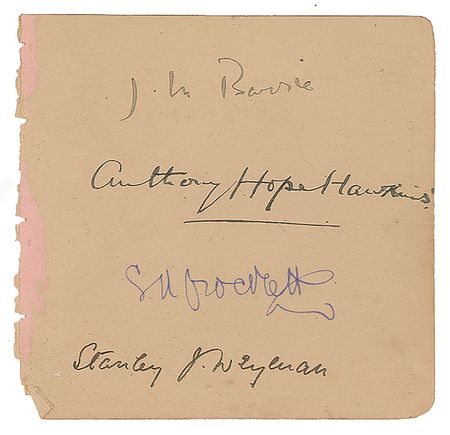 J. M. Barrie
Anthony Hope Hawkins
S.R. Crockett
Stanley J. Weyman